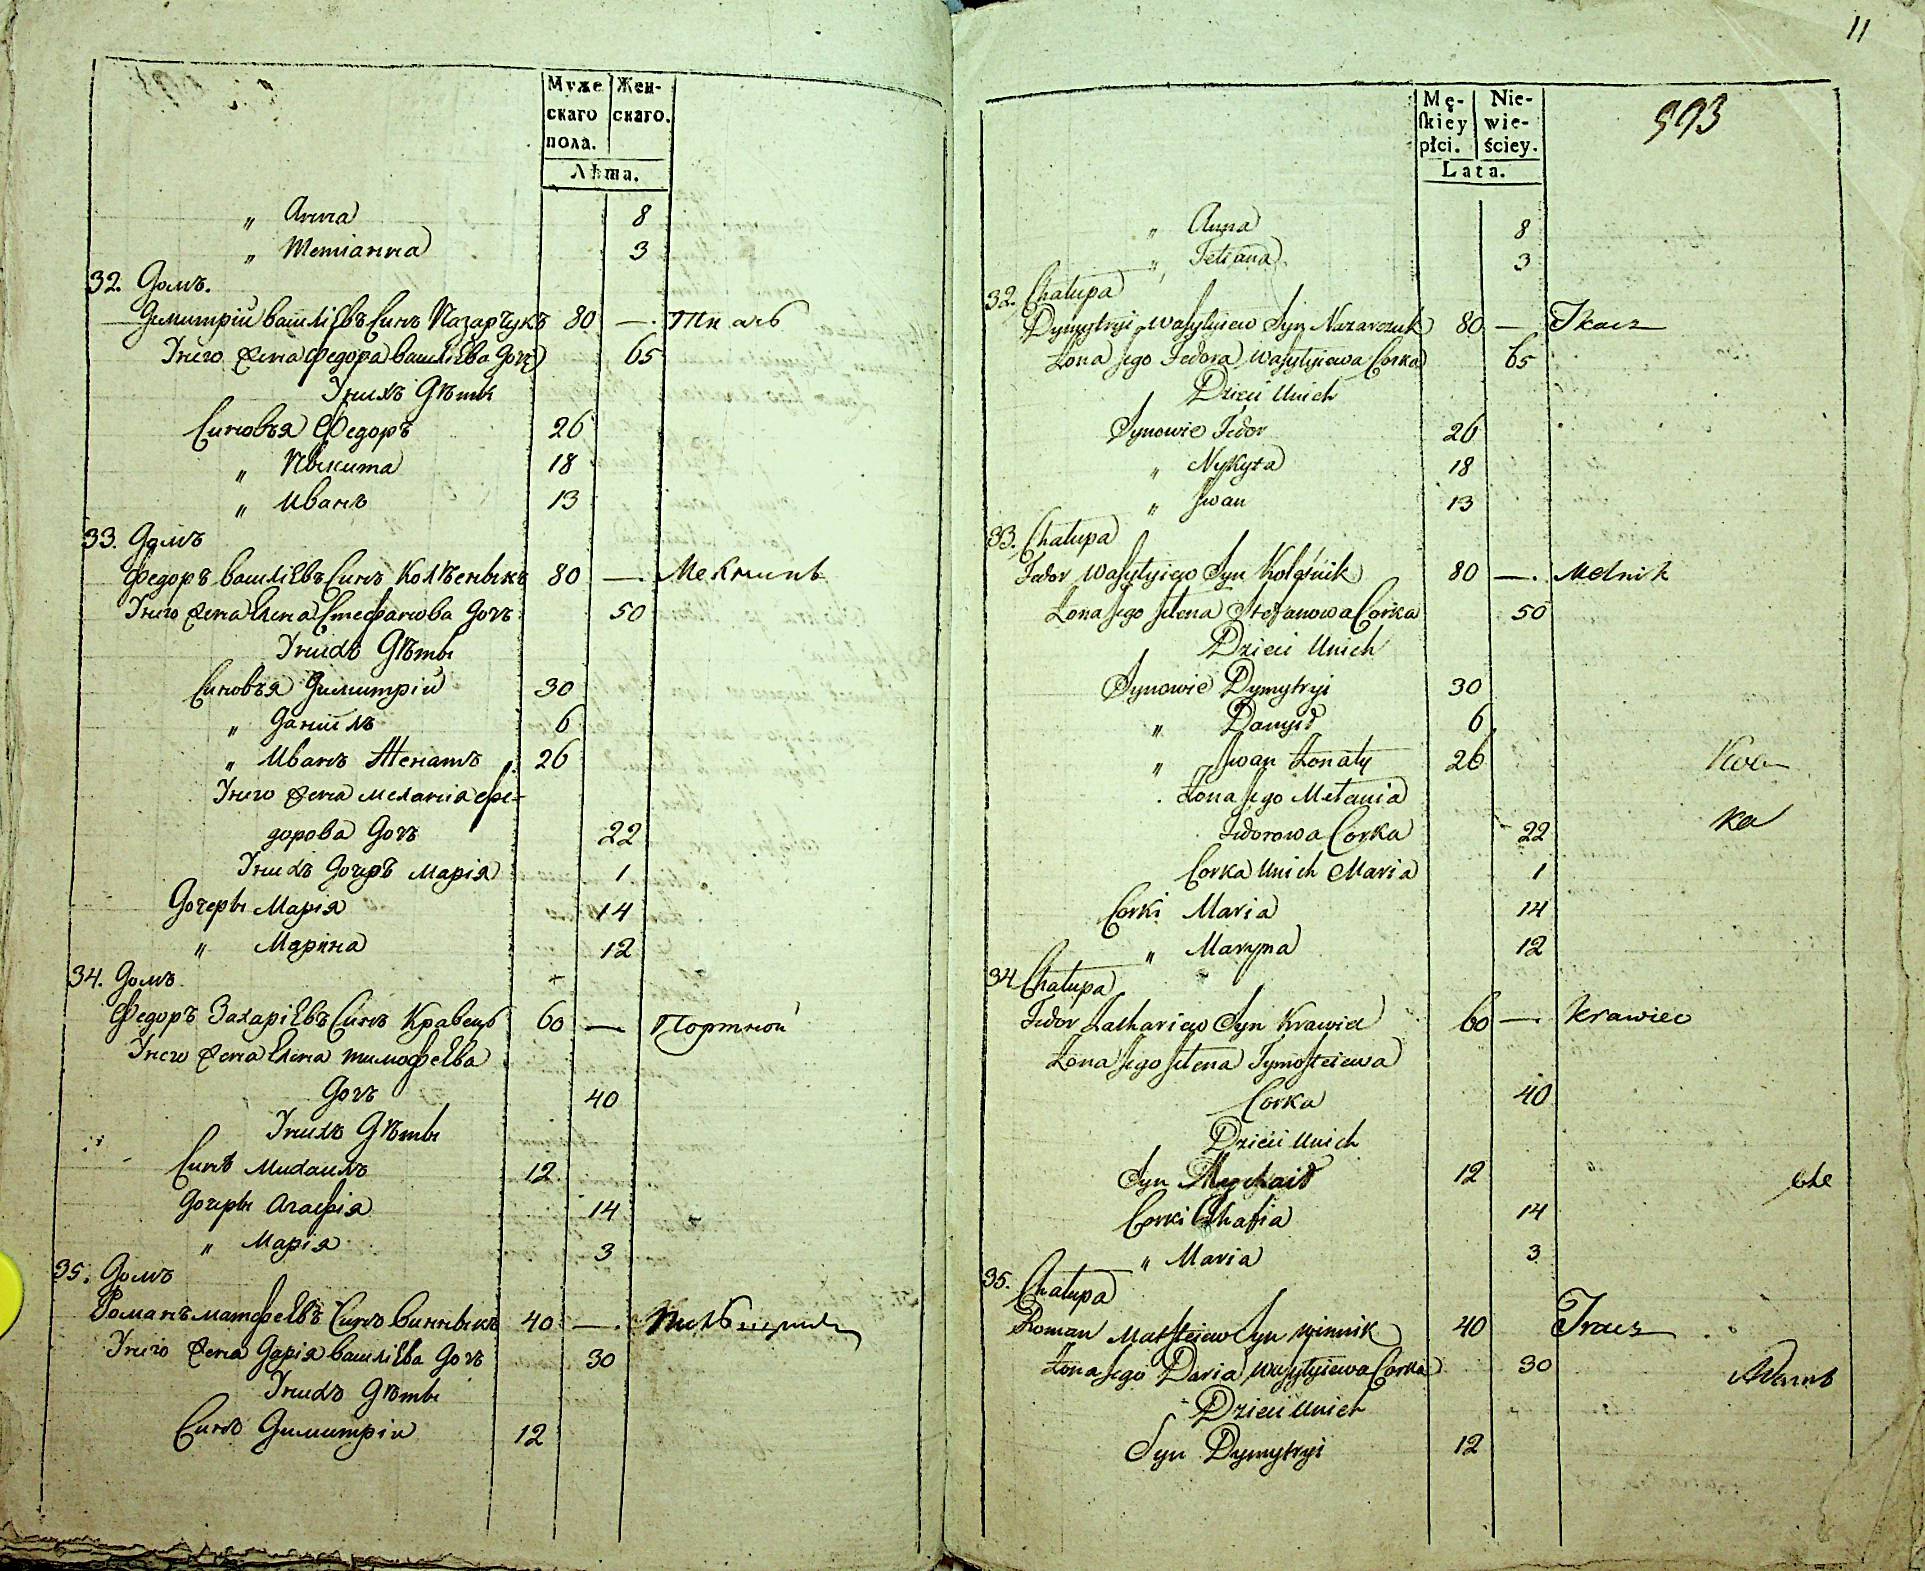 Муже
скаго
пола.
Жен-
скаго.
Лѣта.
„ Анна 8
„ Тетианна 3
32. Домъ.
Димитрій Василіевъ Синъ Назарчукъ 80 —. Ткачъ
У него Жена Федора Василіева Дочь 65
У нихъ Дѣты
Синовья Федоръ 26
„ Ныкита 18
„ Иванъ 13
33. Домъ
Федоръ Василіевъ Синъ Колѣсныкъ 80 —. Мельникъ
У него Жена Елена Стефанова Дочь 50
У нихъ Дѣты
Синовъя Димитрій 30
„ Даниилъ 6
„ Иванъ Женатъ 26
У него Жена Меланія Фе=
дорова Дочь 22
У нихъ Дочеръ Марія 1
Дочеры Марія 14
„ Марина 12
34. Домъ
Федоръ Захаріевъ Синъ Кравецъ 60 — Портной
У него Жена Елена Тимофеева
Дочь 40
У нихъ Дѣты
Синъ Михаилъ 12
Дочеры Агафія 14
„ Марія 3
35. Домъ
Романъ Матфеевъ Синъ Винныкъ 40 —.
У него Жена Дарія Василіева Дочь 30
У нихъ Дѣты
Синъ Димитрій 12
11
593
Mę-
ſkiey
płci.
Nie-
wie-
ściey.
Lata.
„ Anna 8
„ Tetiana 3
32. Chałupa
Dymytryi Wasylyiew Syn Nazarczuk 80 — Tkacz
Żona Jego Fedora Wasylyiewa Corka 65
Dzieci Unich
Synowie Fedor 26
„ Nykyta 18
„ Iwan 13
33. Chałupa
Fedor Wasylyiew Syn Koleśnik 80 —. Melnik
Żona Jego Jelena Stefanowa Corka 50
Dzieci Unich
Synowie Dymytryi 30
„ Danyił 6
„ Iwan Żonaty 26
Żona Jego Melania
Fedorowa Corka 22
ka
Corka Unich Maria 1
Corki Maria 14
„ Maryna 12
34 Chałupa
Fedor Zachariew Syn Krawiec 60 —. Krawiec
Żona Jego Jelena Tymofteiewa
Corka 40
Dzieci Unich
Syn Mychaił 12
Corki Ahafia 14
„ Maria 3
35. Chałupa
Roman Matfteiew Syn Winnik 40 Tracz
Żona Jego Daria Wasylyiewa Corka 30
Dzieci Unich
Syn Dymytryi 12